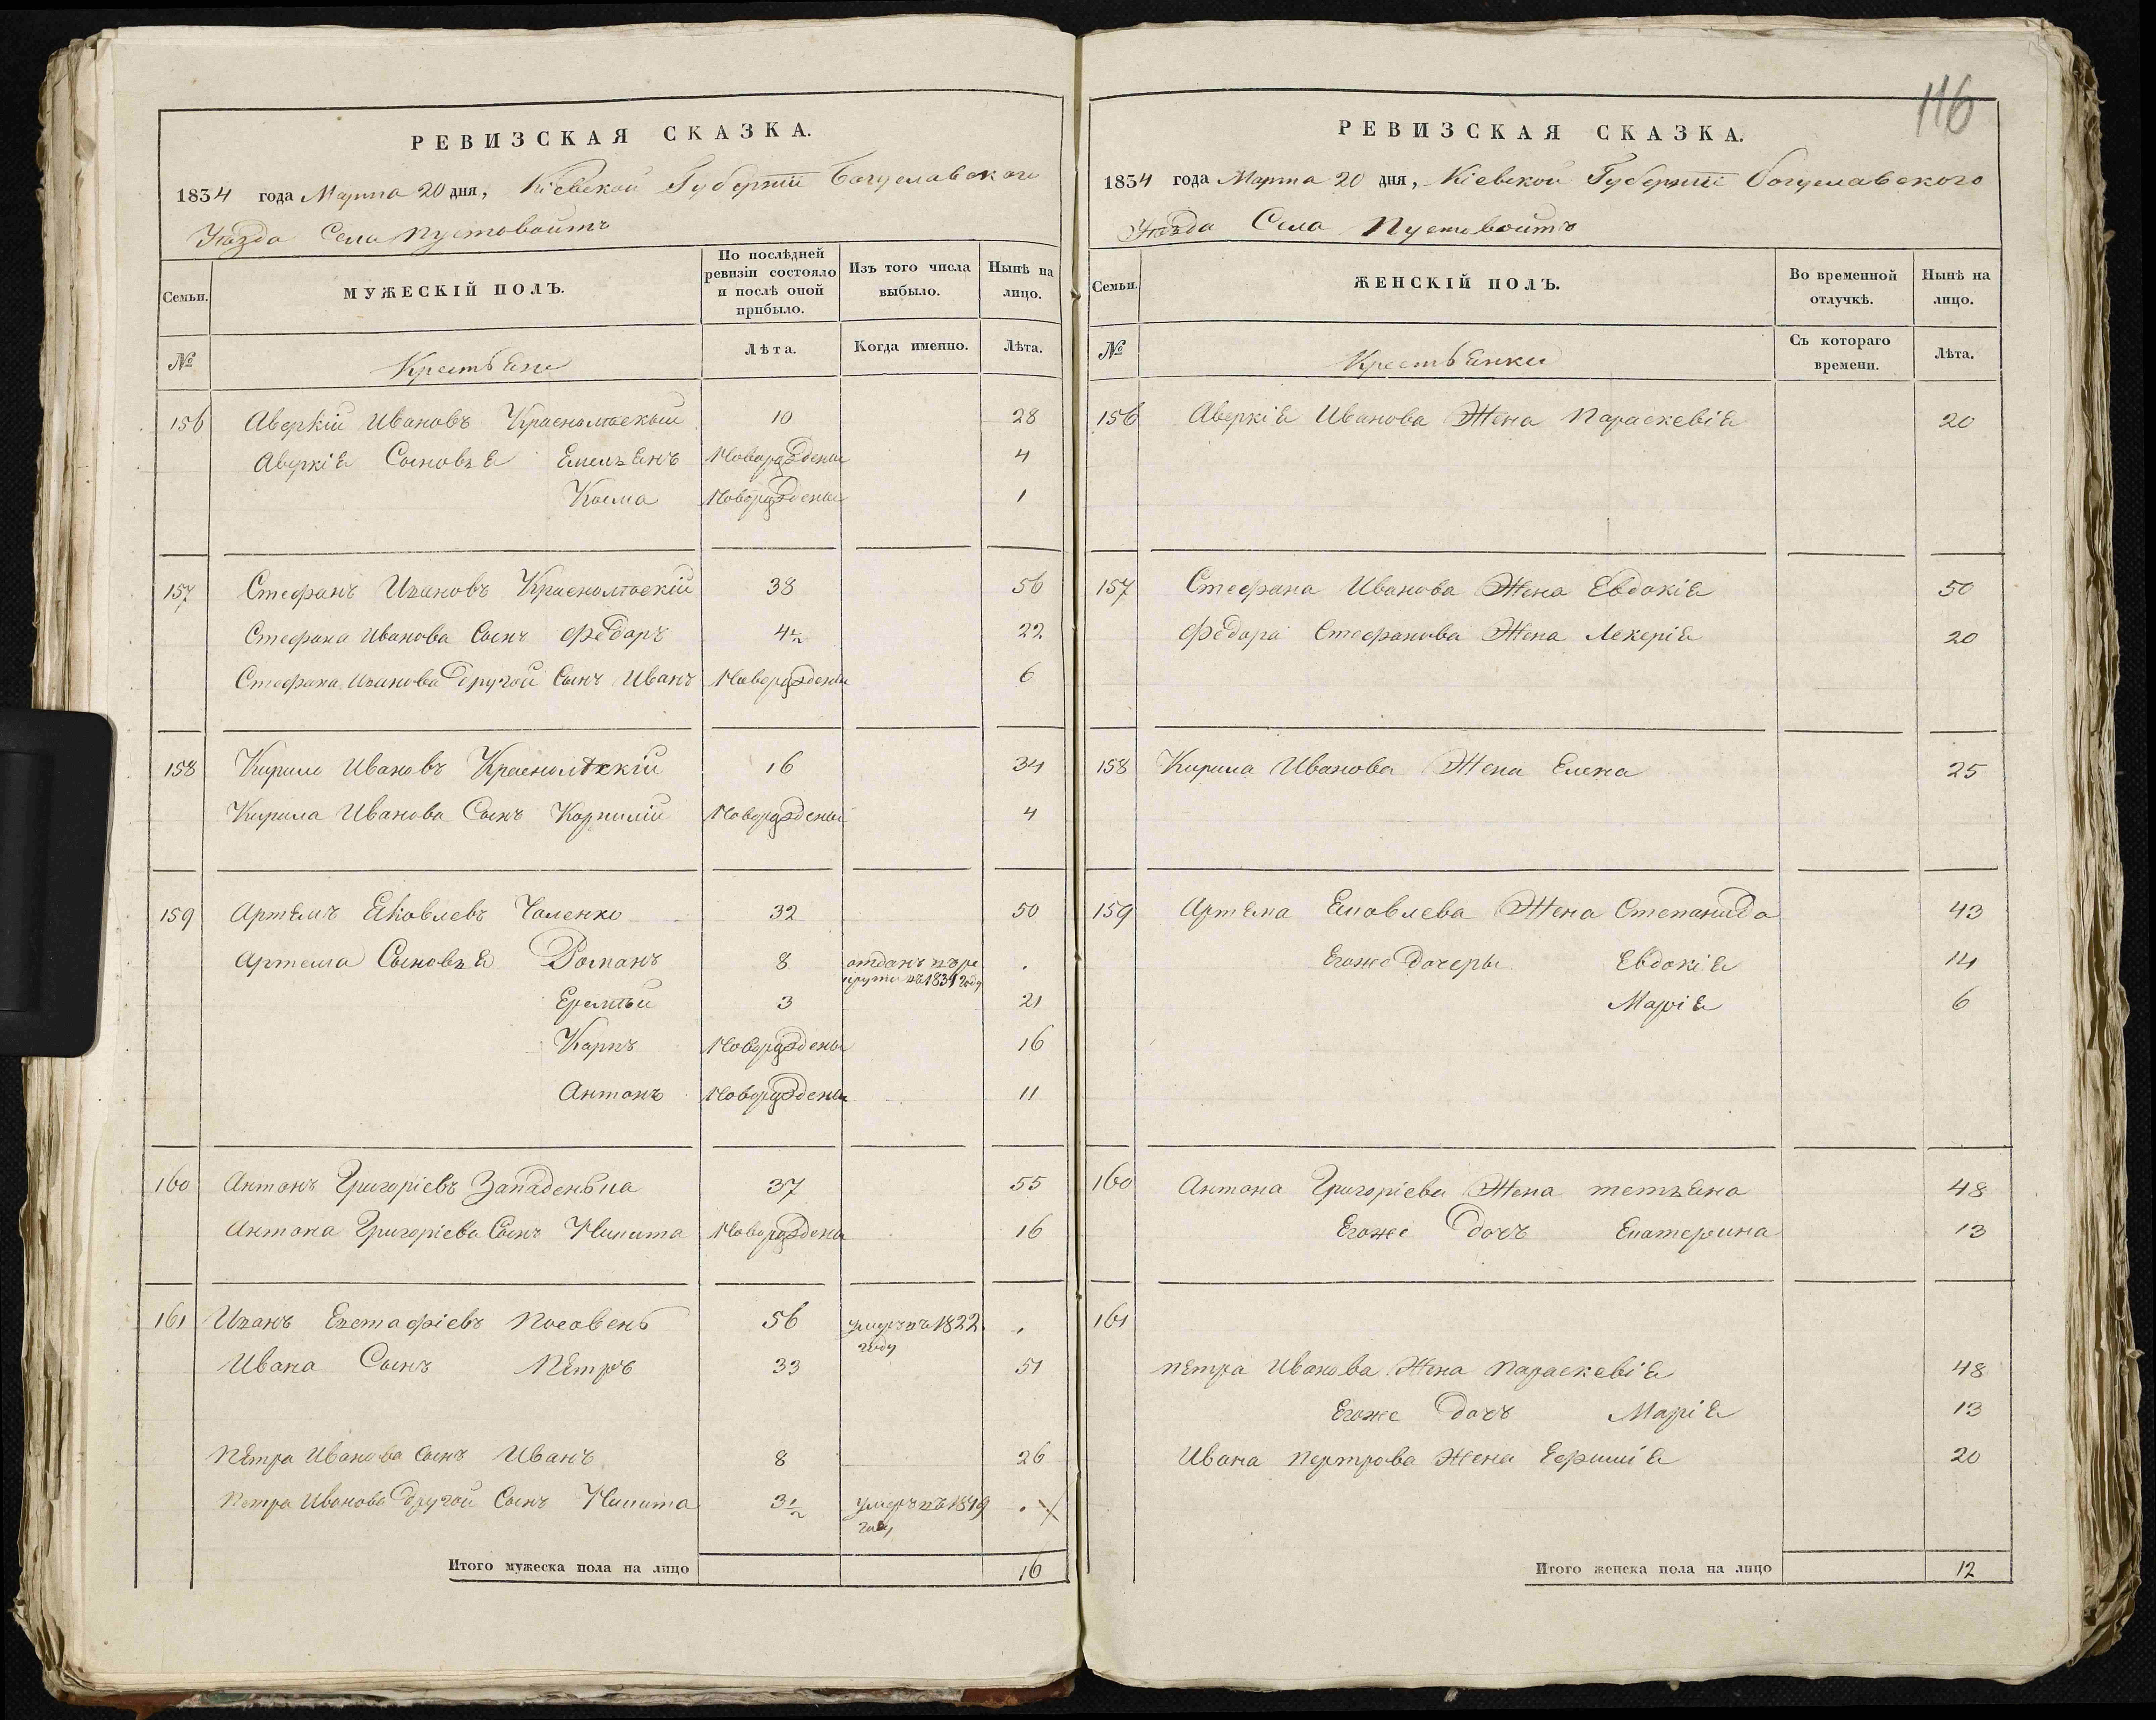 РЕВИЗСКАЯ СКАЗКА.
1834 года Марта 20 дня, Кіевской Губерніи Богуславского
Уѣзда Села Пустовойтъ
Семьи.
МУЖЕСКІЙ ПОЛЪ.
По послѣдней ревизіи состояло и послѣ оной прибыло.
Изъ того числа выбыло.
Нынѣ на лицо.
№
Крестьяне
Лѣта.
Когда именно.
Лѣта.
156 Аверкій Ивановъ 10 28
Аверкія Сыновья Емельянъ Новорожденъ 4
Косма Новорожденъ 1
157 Стефанъ Ивановъ 38 56
Стефана Иванова Сынъ Федоръ 4½ 22
Стефана Иванова другой Сынъ Иванъ Новорожденъ 6
158 Кирило Ивановъ 16 34
Кирила Иванова Сынъ Корнилій Новорожденъ 4
159 Артемъ Яковлевъ Чаленко 32 50
Артема Сыновья Романъ 8 отданъ въ ре
круты въ 1831 году .
Еремѣй 3 21
Карпъ Новорожденъ 16
Антонъ Новорожденъ 11
160 Антонъ Григоріевъ 37 55
Антона Григоріева Сынъ Никита Новорожденъ 16
161 Иванъ Евстафіевъ 56 умеръ въ 1822 .
году
Ивана Сынъ Петръ 33 51
Петра Иванова Сынъ Иванъ 8 26
Петра Иванова другой Сынъ Никита 3½ умеръ въ 1819 .
году
Итого мужеска пола на лицо 16
116
РЕВИЗСКАЯ СКАЗКА.
1834 года Марта 20 дня, Кіевской Губерніи Богуславского
Уѣзда Села Пустовойтъ
Семьи.
ЖЕНСКІЙ ПОЛЪ.
Во временной отлучкѣ.
Нынѣ на лицо.
№
Крестьянки
Съ котораго времени.
Лѣта.
156 Аверкія Иванова Жена Параскевія 20
157 Стефана Иванова Жена Евдокія 50
Федора Стефанова Жена Лекерія 20
158 Кирила Иванова Жена Елена 25
159 Артема Яковлева Жена Степанида 43
Егоже Дочеры Евдокія 14
Марія 6
160 Антона Григоріева Жена тетьяна 48
Егоже дочъ Екатерина 13
161
Петра Иванова Жена Параскевія 48
Егоже дочъ Марія 13
Ивана Пертрова Жена Ефимія 20
Итого женска пола на лицо 12